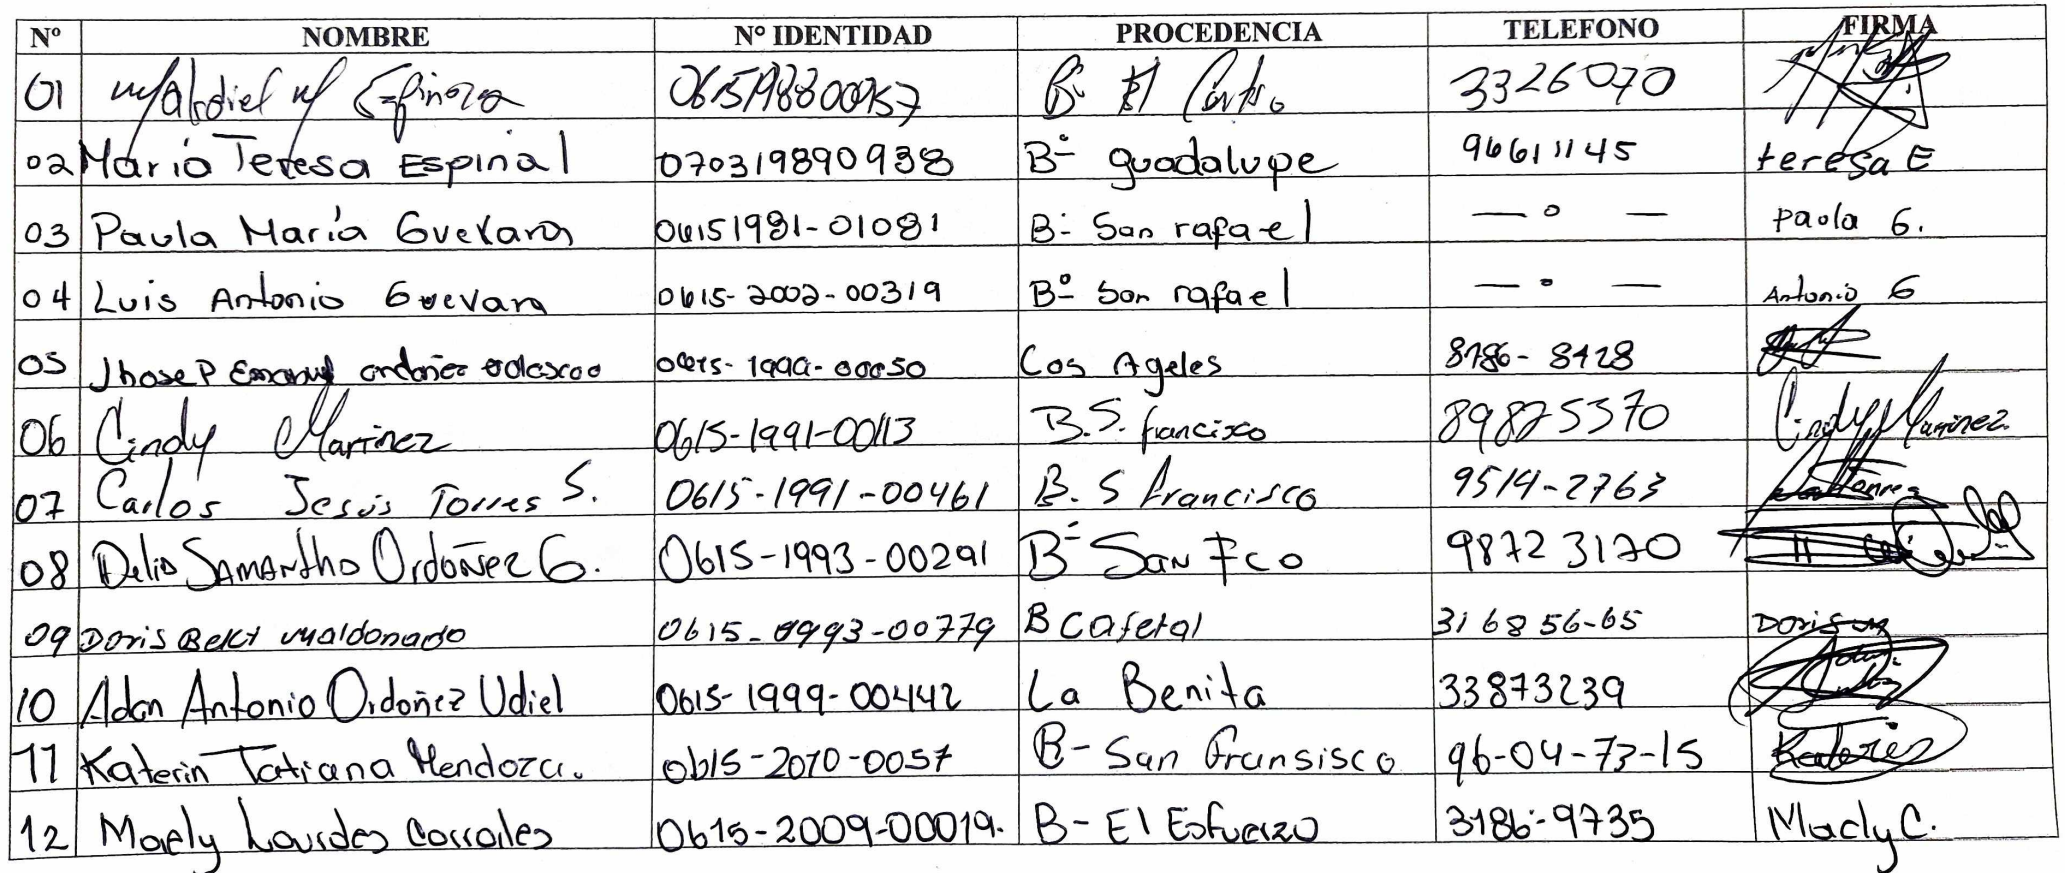 Nº NOMBRE Nº IDENTIDAD PROCEDENCIA TELEFONO FIRMA
01 Espinoza Bº El Centro 3326070
02 Maria Teresa Espinal 070319890938 Bº guadalupe 96611145 teresa E
03 Paula María Guevara 06151981-01081 Bº San rafael — o — Paola G.
04 Luis Antonio Guevara 0615-2002-00319 Bº San rafael — o — Antonio G
05 Jhosep Emanuel ordoñez 0615-1999-00050 Los Ageles 8786-8428
06 Cindy Marinez 0615-1991-00113 B.S. francisco 89875370 Cindy Marinez
07 Carlos Jesús Torres S. 0615-1991-00461 B. S francisco 9514-2763
08 Delia SAMANtha Ordoñez G. 0615-1993-00291 Bº San Fco 98723170
09 Doris Maldonado 0615-1993-00779 B Cafetal 316856-65 Doris
10 Adan Antonio Ordoñez Udiel 0615-1999-00442 La Benita 33873239
11 Katerin Tatiana Mendoza. 0615-2010-0057 B- San Fransisco 96-04-73-15 Katerin
12 Maely Lourdes Corrales 0615-2009-00019. B- El Esfuerzo 3186-9735 Maely C.